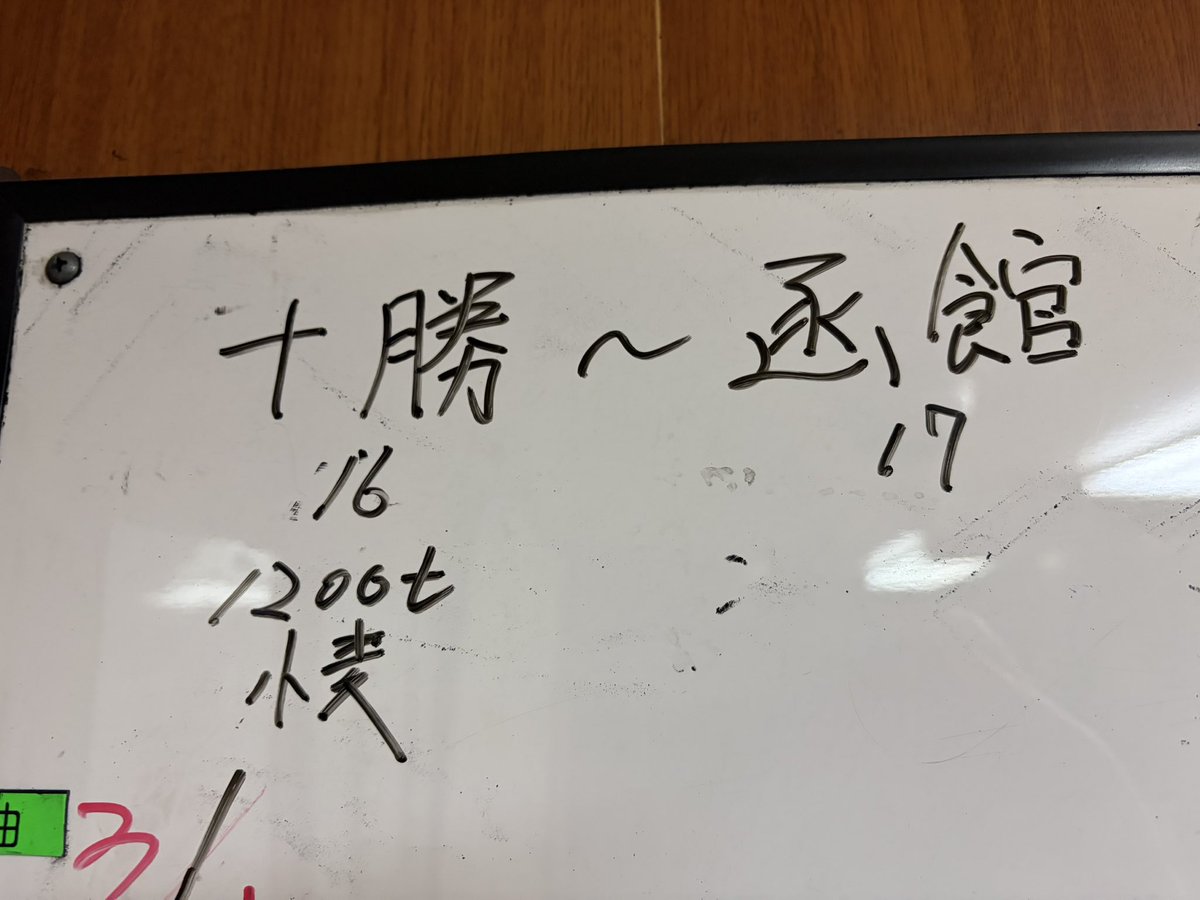 十勝〜函館
16 17
1200t
小麦
油
3/